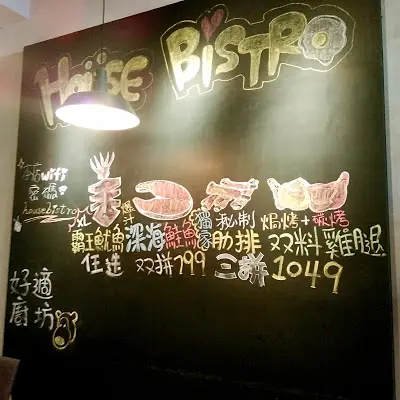 House BiSTRO
本店wifi
密碼?
housebistro
XL 爆汁 獨家 秘制 焗烤+碳烤
霸王魷魚 深海鮭魚 肋排 双料雞腿
任选 双拼799 三拼1049
好適
廚坊